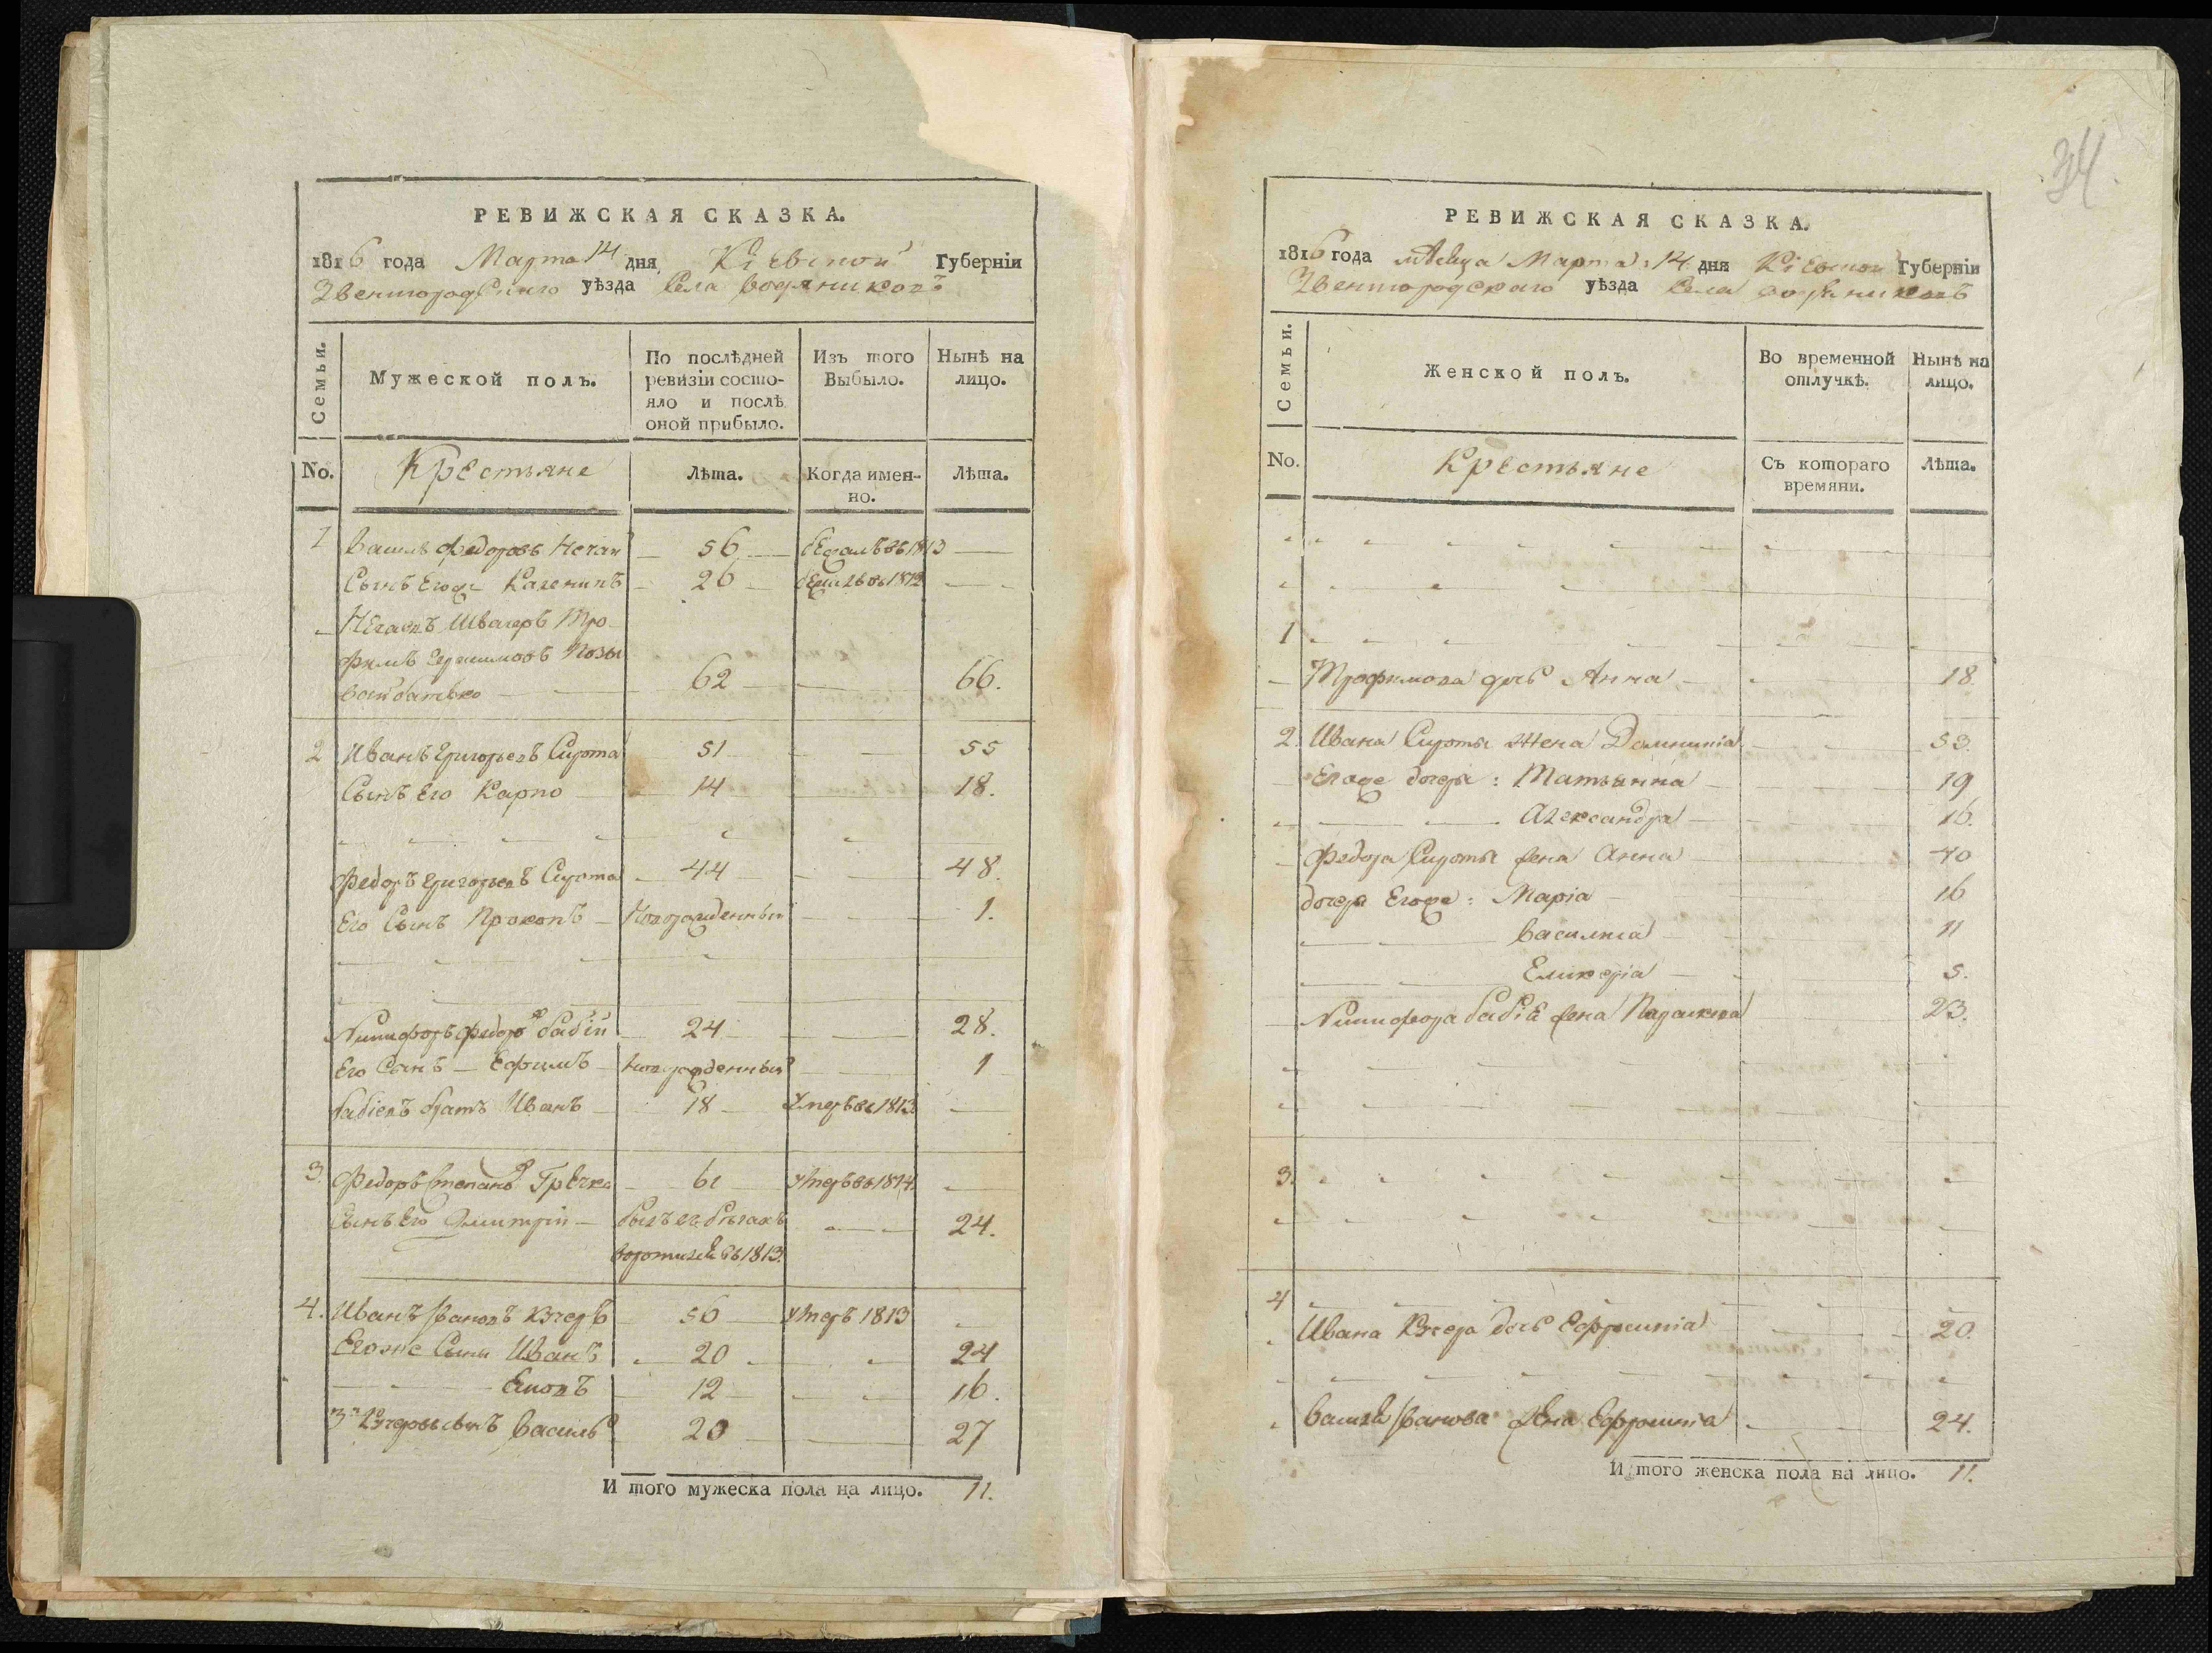 РЕВИЖСКАЯ СКАЗКА.
1816 года Марта 14 дня Кіевской Губерніи
Звенигородского уѣзда Села Водяниковъ
Семьи.
Мужеской полъ.
По послѣдней
ревизіи состо-
яло и послѣ
оной прибыло.
Изъ того
Выбыло.
Нынѣ на
лицо.
No.
Крестьяне
Лѣта.
Когда имен-
но.
Лѣта.
1 Василь Федоровъ 56 въ 1813
Сынъ Егоже 26 1812
Швагеръ Тро
фимъ
батько 62 66.
2 Иванъ Григорьевъ Сирота 51 55
Сынъ Его Карпо 14 18.
Федоръ Григорьевъ Сирота 44 48.
Его Сынъ Прокопъ Новорожденный 1.
Никифоръ Федоров Бабій 24 28.
Его Сынъ Ефимъ новорожденный 1
Бабіевъ братъ Иванъ 18 Умеръ въ 1813
3. Федоръ Степанов Гречка 61 умеръ въ 1814.
Сынъ Его Дмитрій былъ въ бѣгахъ 24.
воротился въ 1813.
4. Иванъ Ивановъ 56 умеръ 1813
Егоже Сыны Иванъ 20 24
12 16.
Василь 20 27
И того мужеска пола на лицо. 11.
34.
РЕВИЖСКАЯ СКАЗКА.
1816 года мѣсяца Марта 14 дня Кіевской Губерніи
Звенигородского уѣзда Села Водяниковъ
Семьи.
Женской полъ.
Во временной
отлучкѣ.
Нынѣ на
лицо.
No.
Крестьяне
Съ котораго
времяни.
Лѣта.
1
Трофимова дочь Анна 18
2. Ивана Сироты Жена Домникія 53.
Егоже дочери: Татьянна 19
Александра 16.
Федора Сироты жена Анна 40
дочери Егоже: Марія 16
Василиса 11
Гликерія 5.
Никифора Бабія жена Параскева 23.
3.
4
Ивана дочь Ефросинія 20.
Василя Иванова жена Ефросинія 24.
И того женска пола на лицо. 11.